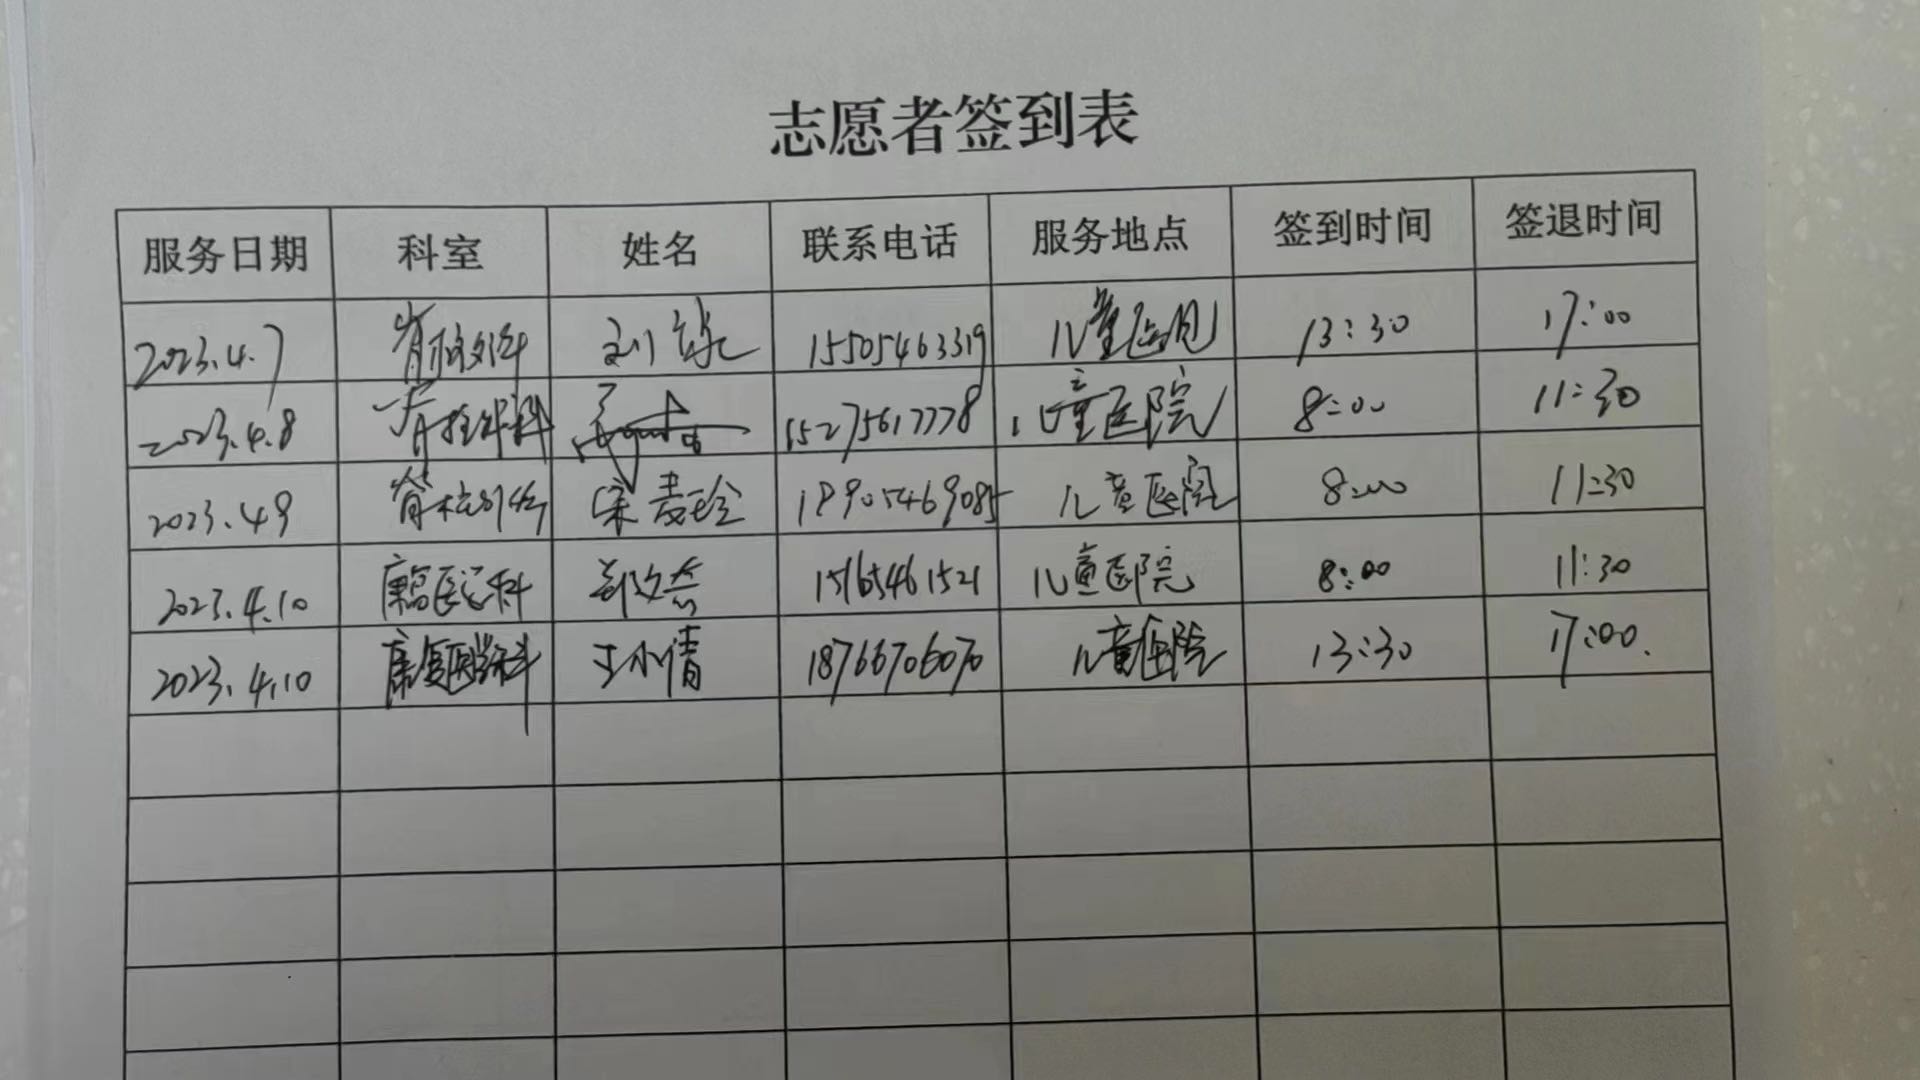 志愿者签到表
服务日期 科室 姓名 联系电话 服务地点 签到时间 签退时间
2023.4.7 脊柱外科 刘 15505463319 儿童医院 13:30 17:00
2023.4.8 脊柱外科 15275617778 儿童医院 8:00 11:30
2023.4.9 脊柱外科 宋麦玲 18905469085 儿童医院 8:00 11:30
2023.4.10 康复医学科 郭文杰 15165461521 儿童医院 8:00 11:30
2023.4.10 康复医学科 王小倩 18766706070 儿童医院 13:30 17:00.